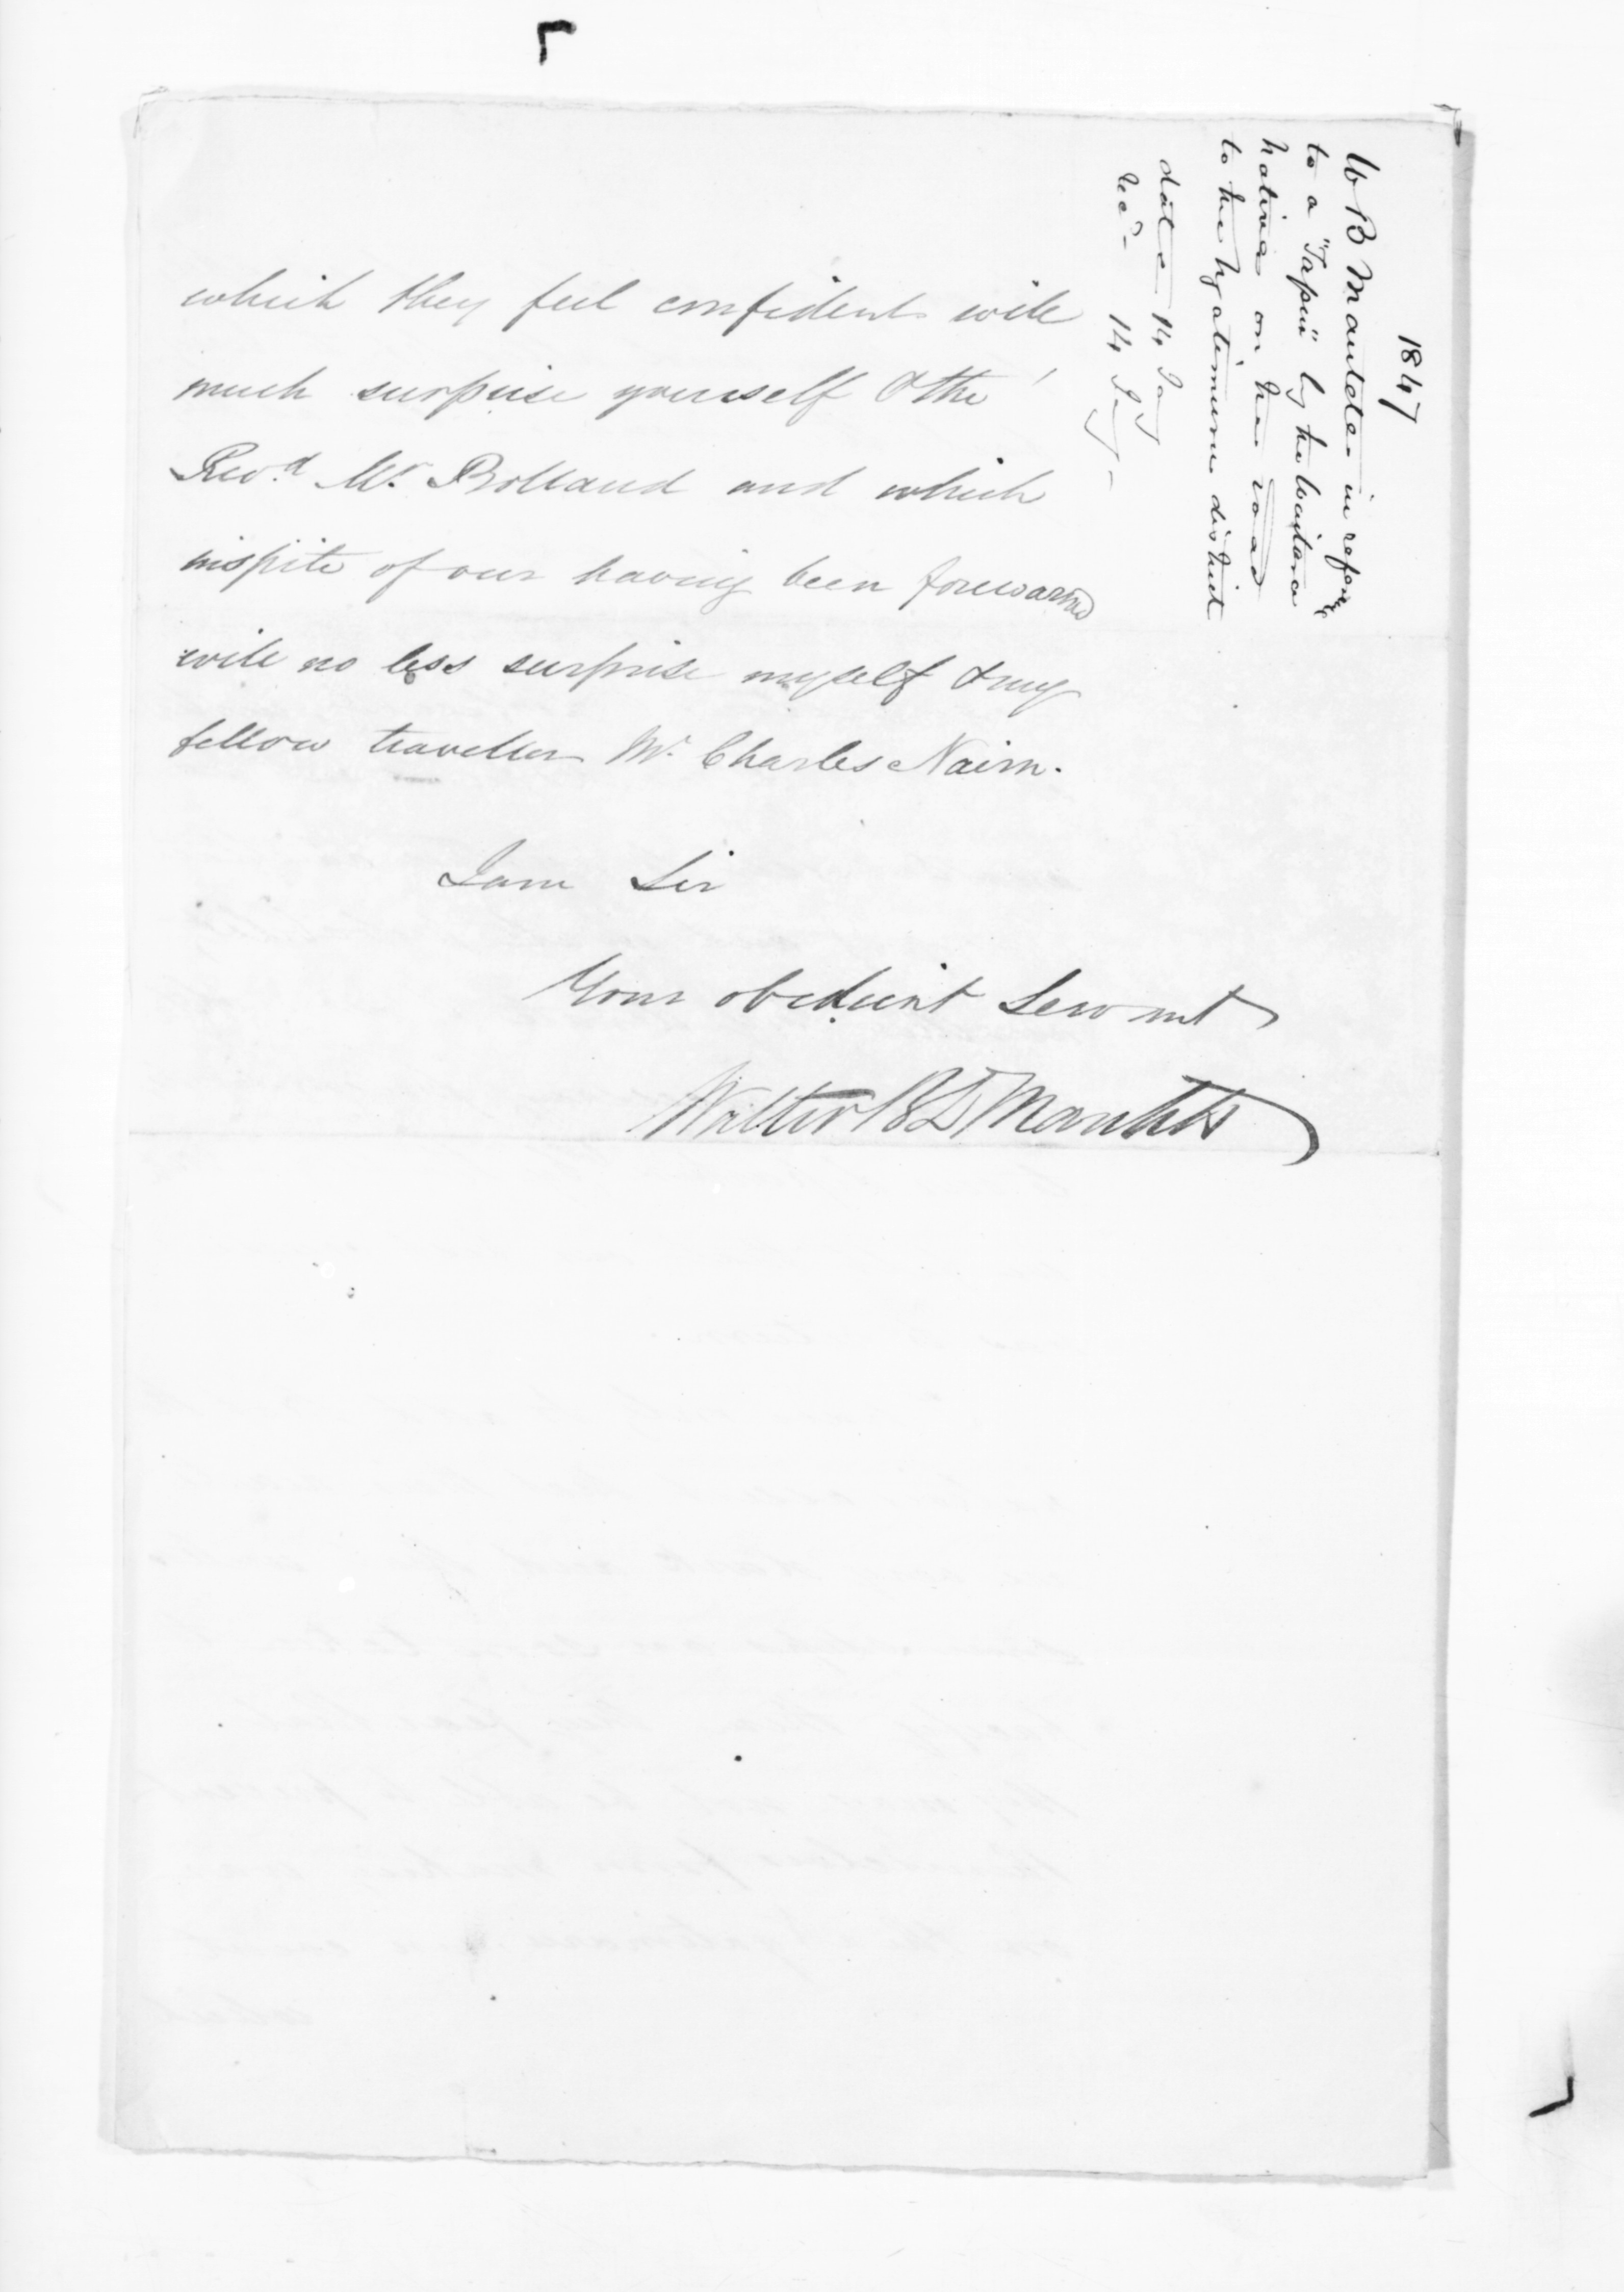 which they feel confident will
much surprise yourself & the
Revd. Mr. Bolland and which
inspite of our having been forewarned
will no less surprise myself & my
fellow traveller Mr. Charles Nairn.
I am Sir
Your obedient Servant
Walter B D Mantell
1847
W B Mantell in
to a "Tapu" by the Waitara
natives on the road
to the Ngatimaru district
date 14 Jany
recd- 14 Jany-